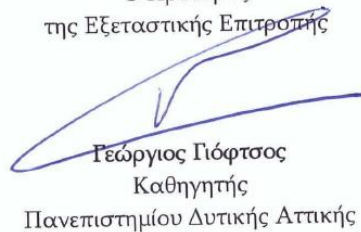 της Εξεταστικής Επιτροπής
Γεώργιος Γιόφτσος
Καθηγητής
Πανεπιστημίου Δυτικής Αττικής